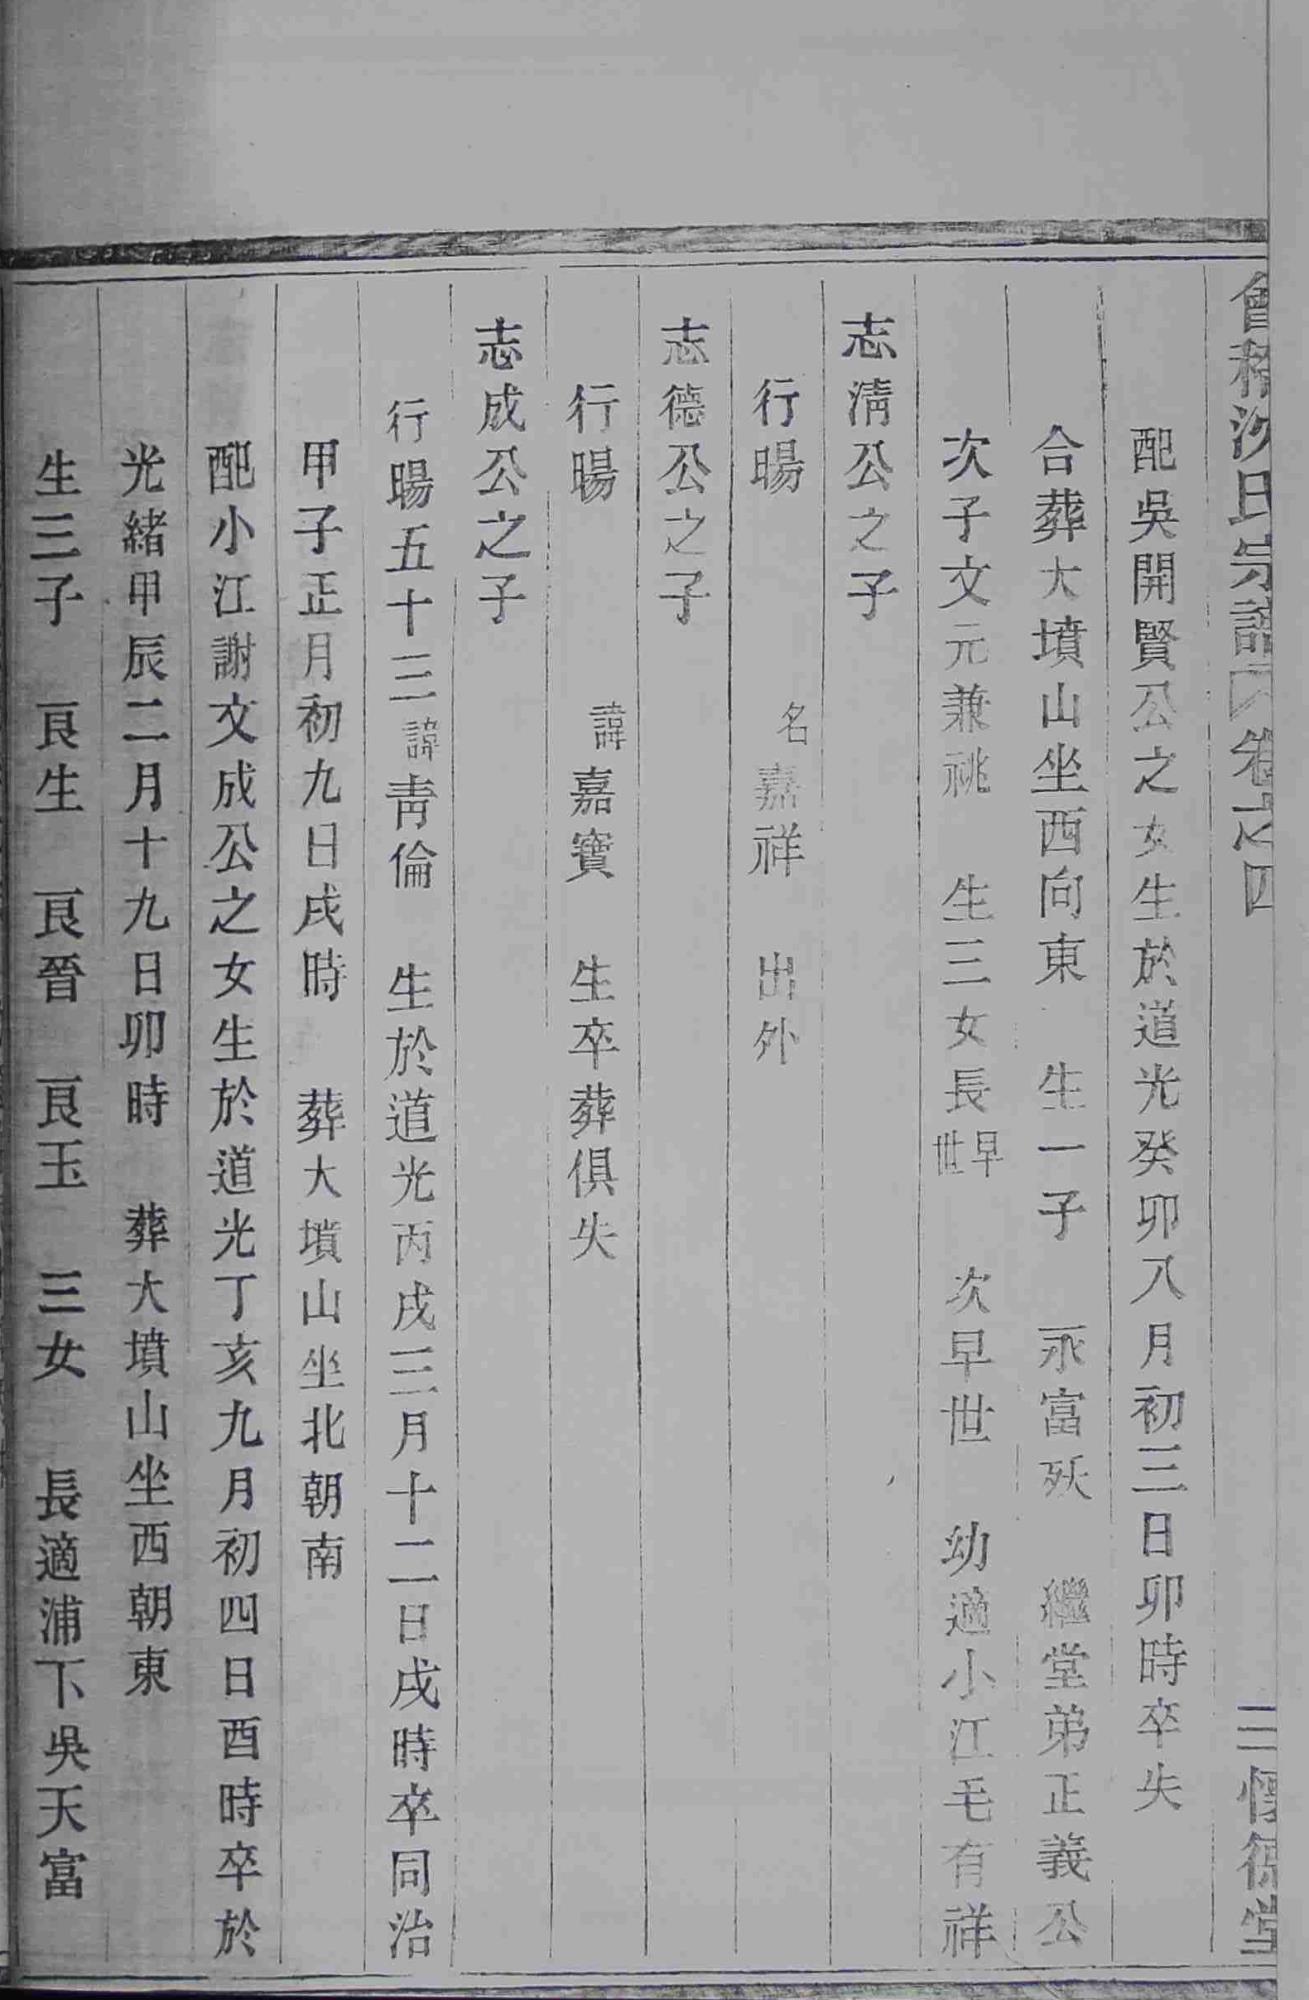 會稽沈氏宗譜 卷之四 三 懷德堂
配吳開賢公之女生於道光癸卯八月初三日卯時卒失
合葬大墳山坐西向東 生一子 永富殀 繼堂弟正義公
次子文元兼祧 生三女長早世 次早世 幼適小江毛有祥
志淸公之子
行暘 名嘉祥 出外
志德公之子
行暘 諱嘉寶 生卒葬俱失
志成公之子
行暘五十三諱靑倫 生於道光丙戌三月十二日戌時卒同治
甲子正月初九日戌時 葬大墳山坐北朝南
配小江謝文成公之女生於道光丁亥九月初四日酉時卒於
光緒甲辰二月十九日卯時 葬大墳山坐西朝東
生三子 良生 良晉 良玉 三女 長適浦下吳天富